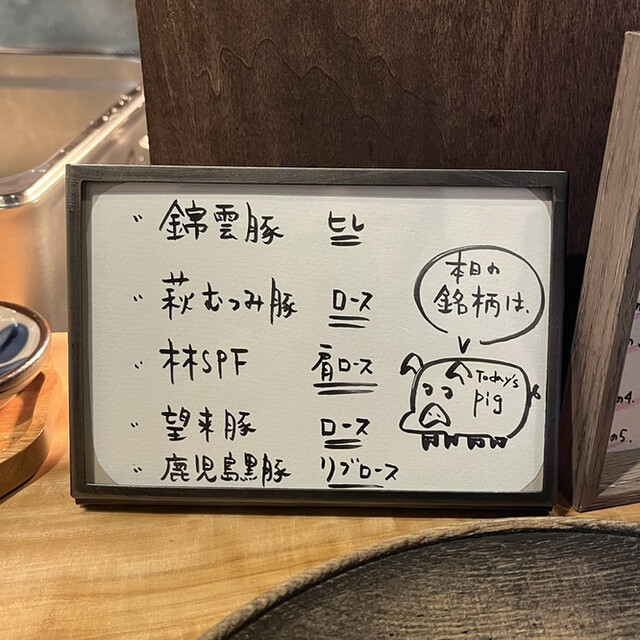 〃 錦雲豚 ヒレ
〃 萩むつみ豚 ロース
〃 林SPF 肩ロース
〃 望来豚 ロース
〃 鹿児島黒豚 リブロース
本日の
銘柄は、
Today's
pig
の4.
の5.